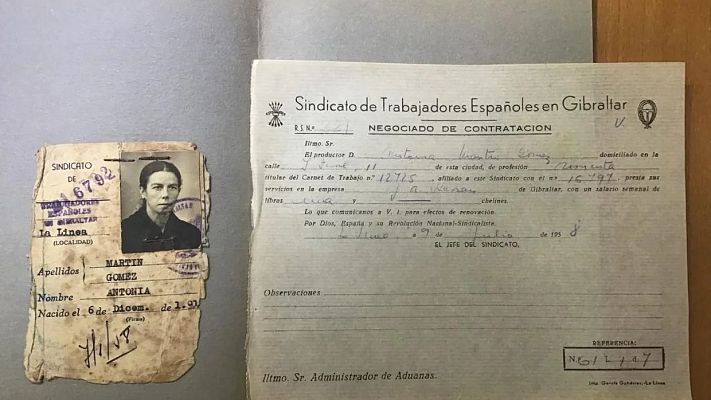 SINDICATO
DE
16792
TRABAJADORES
ESPAÑOLES
EN GIBRALTAR
La Línea
(LOCALIDAD)
Apellidos MARTIN
GOMEZ
Nombre ANTONIA
Nacido el 6 de Dicem. de 1.91
(Firma)
7/1/58
Sindicato de Trabajadores Españoles en Gibraltar
R.S.N.º
NEGOCIADO DE CONTRATACION
Iltmo. Sr.
El productor D. Martin Gomez domiciliado en la
calle 11 de esta ciudad, de profesión
titular del Carnet de Trabajo n.º 12725 afiliado a este Sindicato con el n.º 16797, presta sus
servicios en la empresa de Gibraltar, con un salario semanal de
libras una y chelines.
Lo que comunicamos a V. I. para efectos de renovación.
Por Dios, España y su Revolución Nacional-Sindicalista.
La Línea a 9 de Julio de 1958
EL JEFE DEL SINDICATO,
Observaciones
REFERENCIA:
Iltmo. Sr. Administrador de Aduanas.